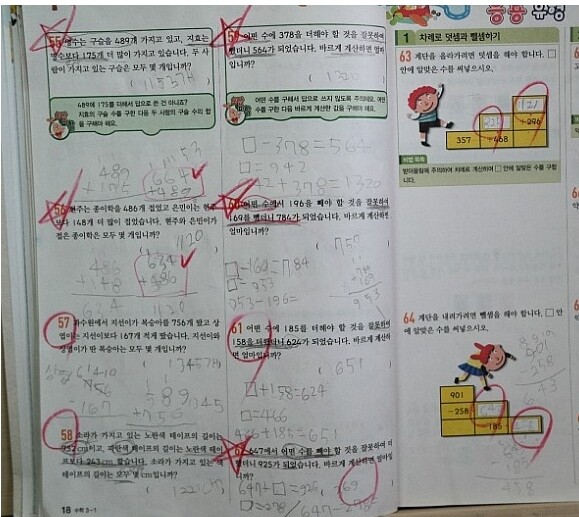 55 영수는 구슬을 489개 가지고 있고, 지효는
영수보다 175개 더 많이 가지고 있습니다. 두 사
람이 가지고 있는 구슬은 모두 몇 개입니까?
(1153개)
489에 175를 더해서 답으로 쓴 건 아니죠?
지효의 구슬 수를 구한 다음 두 사람의 구슬 수의 합
을 구해야 해요.
489
+175
664
+489
1153
56 현주는 종이학을 486개 접었고 은민이는 현주
보다 148개 더 많이 접었습니다. 현주와 은민이가
접은 종이학은 모두 몇 개입니까?
1120
486
+148
634
634
+486
1120
57 과수원에서 지선이가 복숭아를 756개 땄고 상
영이는 지선이보다 167개 적게 땄습니다. 지선이와
상영이가 딴 복숭아는 모두 몇 개입니까?
(1345개)
756
-167
589
+756
1345
58 소라가 가지고 있는 노란색 테이프의 길이는
952 cm이고, 파란색 테이프의 길이는 노란색 테이
프보다 243 cm 짧습니다. 소라가 가지고 있는 색
테이프의 길이는 모두 몇 cm입니까?
18 수학 3-1
59 어떤 수에 378을 더해야 할 것을 잘못하여
뺐더니 564가 되었습니다. 바르게 계산하면 얼마
입니까?
(1320)
어떤 수를 구해서 답으로 쓰지 않도록 주의해요. 어떤
수를 구한 다음 바르게 계산한 값을 구해야 해요.
□-378=564
□=942
942+378=1320
60 어떤 수에서 196을 빼야 할 것을 잘못하여
169를 뺐더니 784가 되었습니다. 바르게 계산하면
얼마입니까?
(757)
□-169=784
□=953
953-196=
953
61 어떤 수에 185를 더해야 할 것을 잘못하여
158을 더했더니 624가 되었습니다. 바르게 계산하
면 얼마입니까?
(651)
□+158=624
□=466
466+185=651
62 647에서 어떤 수를 빼야 할 것을 잘못하여 더
했더니 925가 되었습니다. 바르게 계산하면 얼마입
니까?
(369)
647+□=925
□=278
647-278=
1 차례로 덧셈과 뺄셈하기
63 계단을 올라가려면 덧셈을 해야 합니다. □
안에 알맞은 수를 써넣으시오.
+296
357
+468
받아올림에 주의하여 차례로 계산하여 □ 안에 알맞은 수를 구합
니다.
64 계단을 내려가려면 뺄셈을 해야 합니다. □ 안
에 알맞은 수를 써넣으시오.
901
-258
643
-185
458